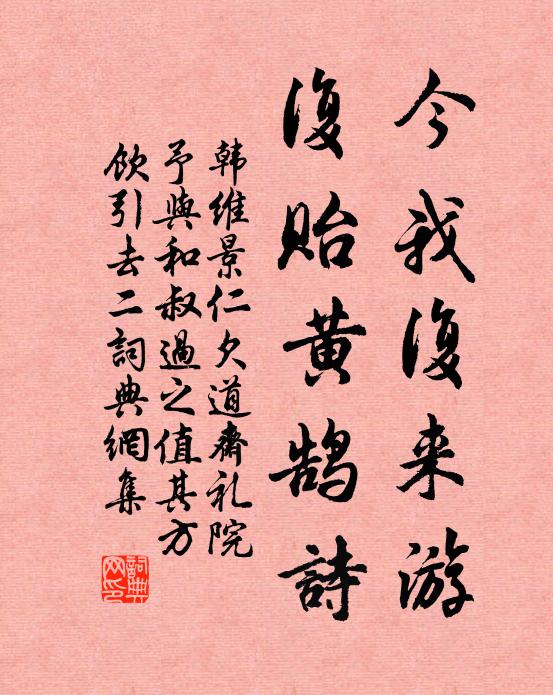 今我復来游
復贻黄鹄詩
韩维景仁夕道齋礼院
予與和叔過之值其方
飲引去二詞典網集
詞典网印